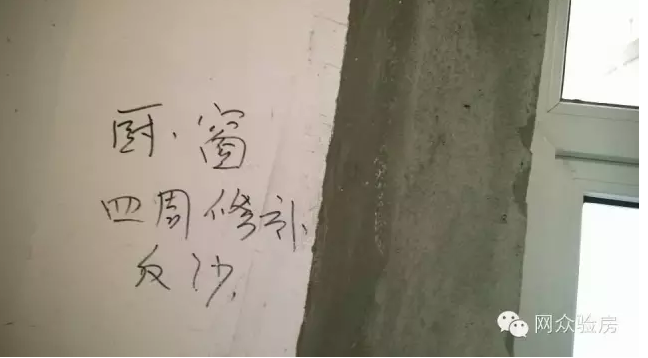 厨、窗
四周修补
反沙
网众验房